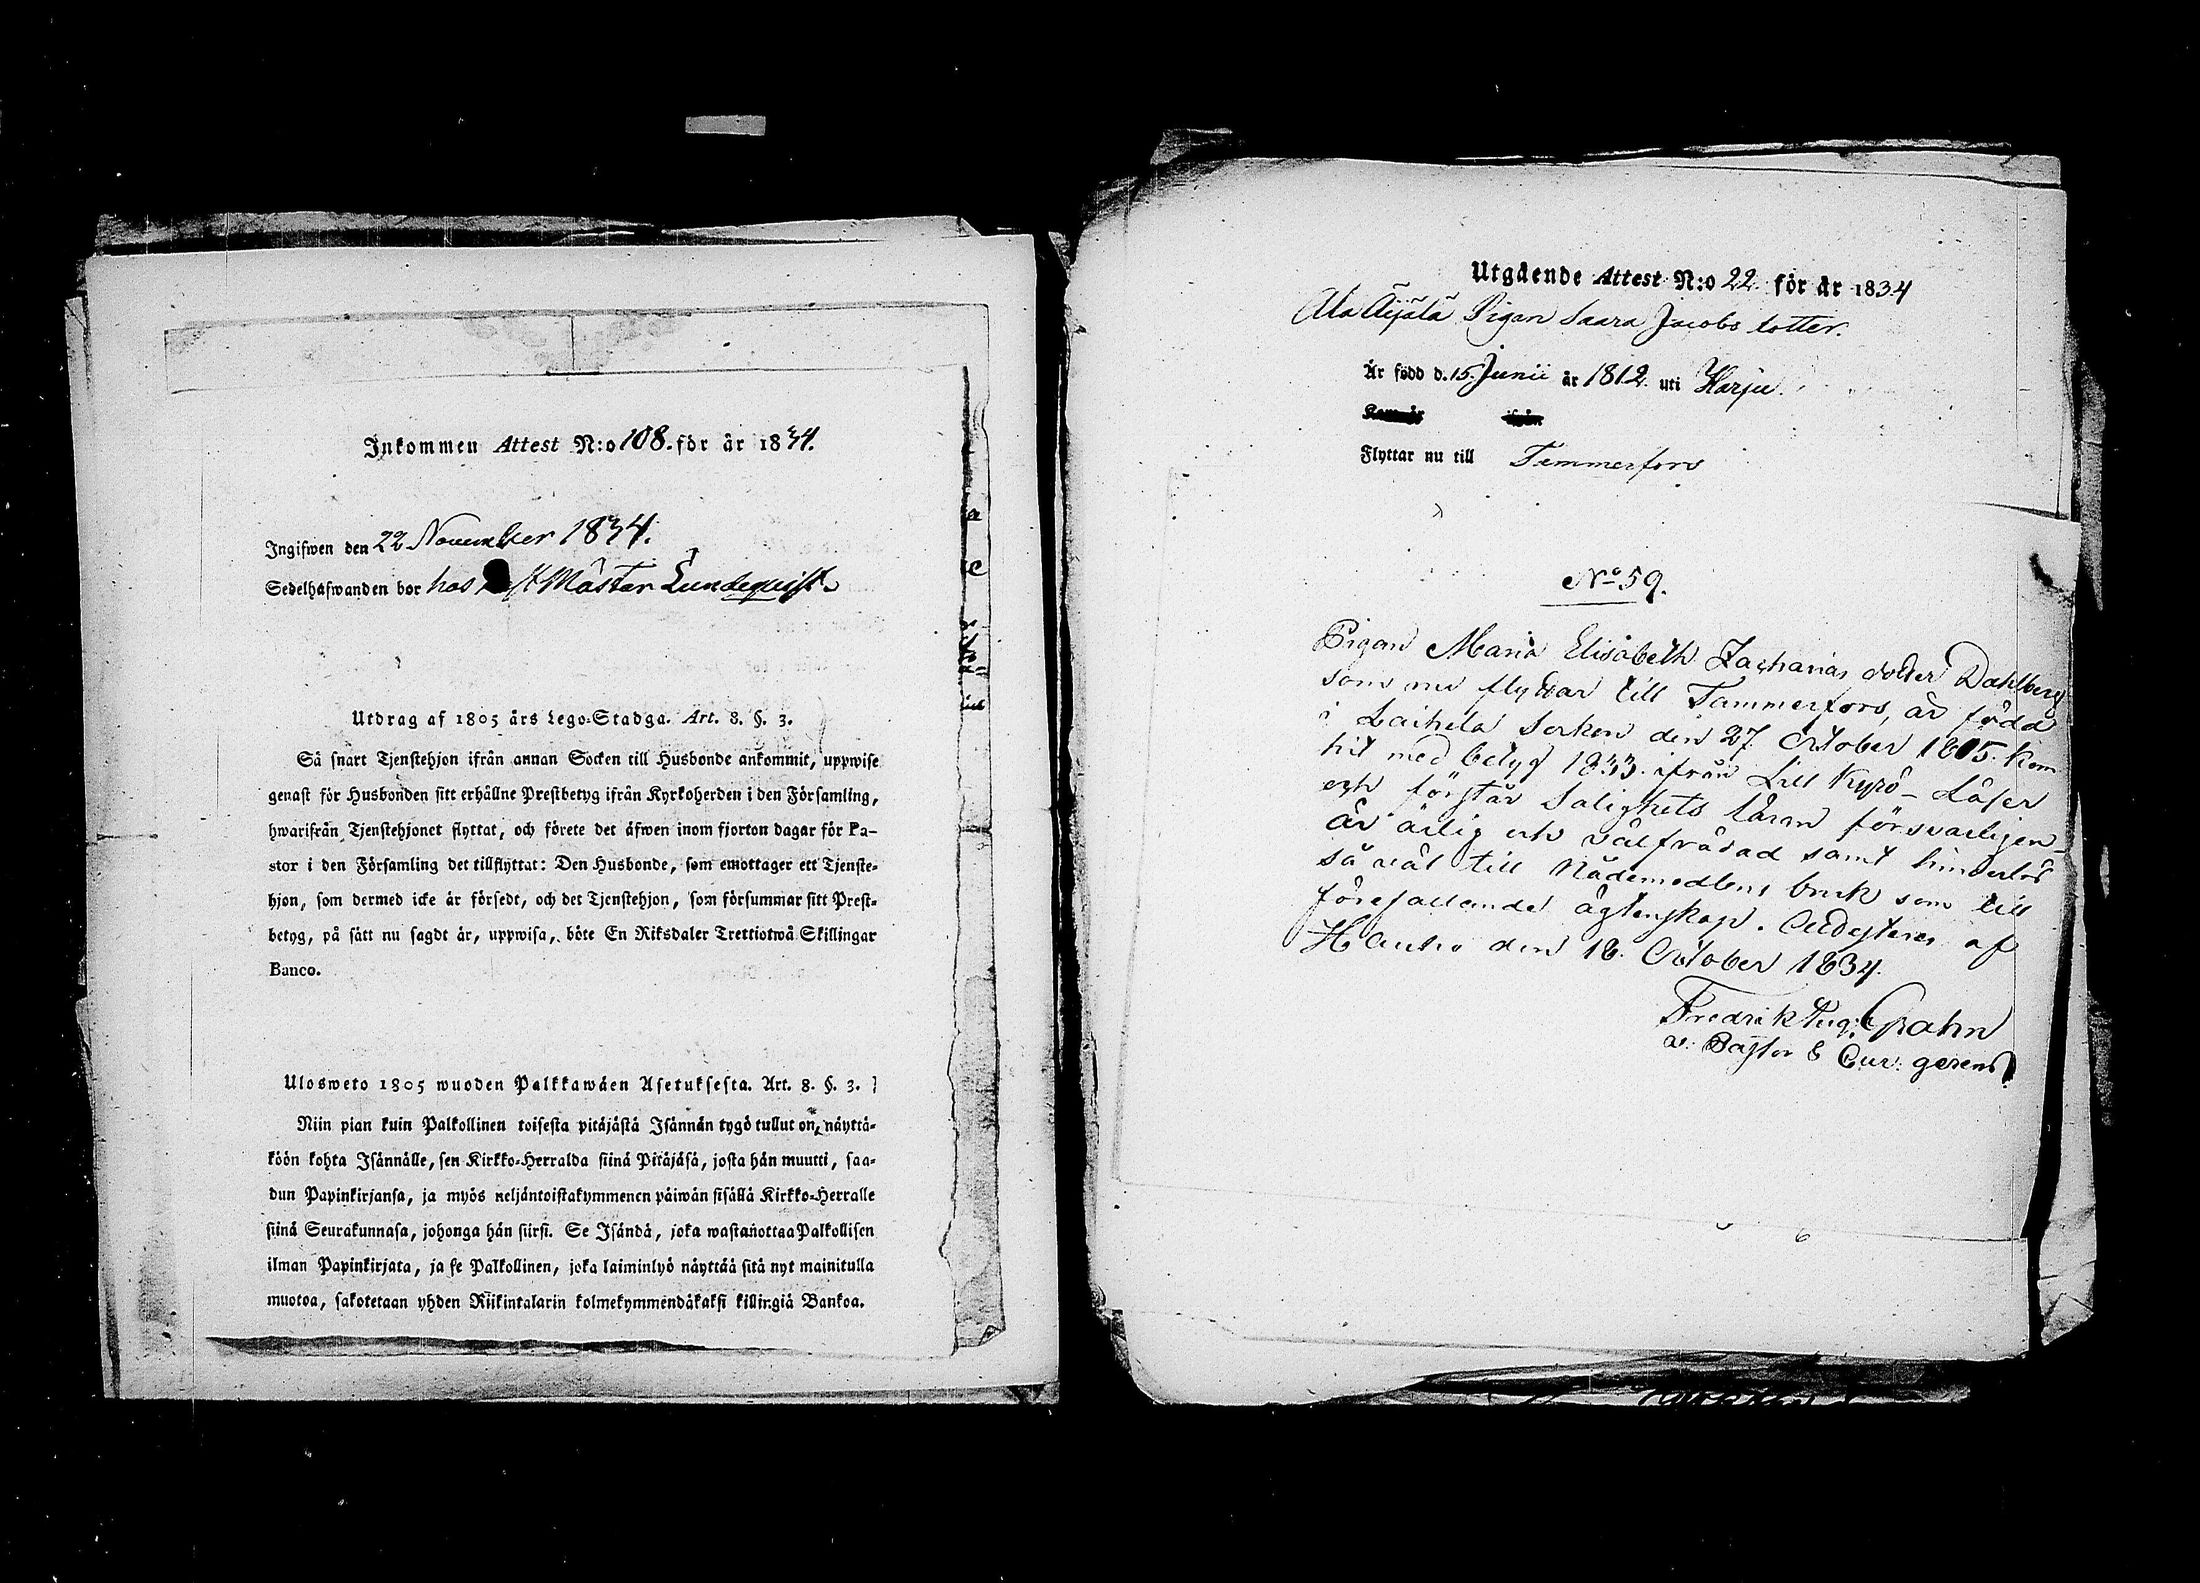 Inkommen Attest N:o 108. för år 1834.
Ingifwen den 22 November 1834.
Sedelhafwanden bor hos Mästar Lundequist.
Utdrag af 1805 års Lego-Stadga. Art. 8. §. 3.
Så snart Tjenstehjon ifrån annan Socken till Husbonde ankommit, uppwise
genast för Husbonden sitt erhållne Prestbetyg ifrån Kyrkoherden i den Församling,
hwarifrån Tjenstehjonet flyttat, och förete det äfwen inom fjorton dagar för Pa-
stor i den Församling det tillflyttat: Den Husbonde, som emottager ett Tjenste-
hjon, som dermed icke är försedt, och det Tjenstehjon, som försummar sitt Prest-
betyg, på sätt nu sagdt är, uppwisa, böte En Riksdaler Trettiotwå Skillingar
Banco.
Ulosweto 1805 wuoden Palkkawäen Asetuksesta. Art. 8. §. 3.
Niin pian kuin Palkollinen toisesta pitäjästä Isännän tygö tullut on, näyttä-
köön kohta Isännälle, sen Kirkko-Herralda siinä Pitäjäsä, josta hän muutti, saa-
dun Papinkirjansa, ja myös neljäntoistakymmenen päiwän sisällä Kirkko-Herralle
siinä Seurakunnasa, johonga hän siirsi. Se Isändä, joka wastanottaa Palkollisen
ilman Papinkirjata, ja se Palkollinen, joka laiminlyö näyttää sitä nyt mainitulla
muotoa, sakotetaan yhden Riikintalarin kolmekymmendäkaksi killingiä Bankoa.
Utgående Attest N:o 22 för år 1834
Ala Äijälä Pigan Saara Jacobs dotter.
Är född d. 15. Junii år 1812. uti Harju.
Flyttar nu till Tammerfors
No 59.
Pigan Maria Elisabeth Zacharias dotter Dahlberg
som nu flyttar till Tammerfors, är född
i Laihela Socken den 27. October 1805. Kom
hit med betyg 1833. ifrån Lill Kyrö - Läser
och förstår Salighets läran försvarligen -
är ärlig och välfrädad samt hinderlös
så väl till Nådemedlens bruk som till
förefallande ägtenskap. Attesteras af
Hauho den 18. October 1834.
Fredrik Aug. Grahn
v. Pastor & Cur. gerens.